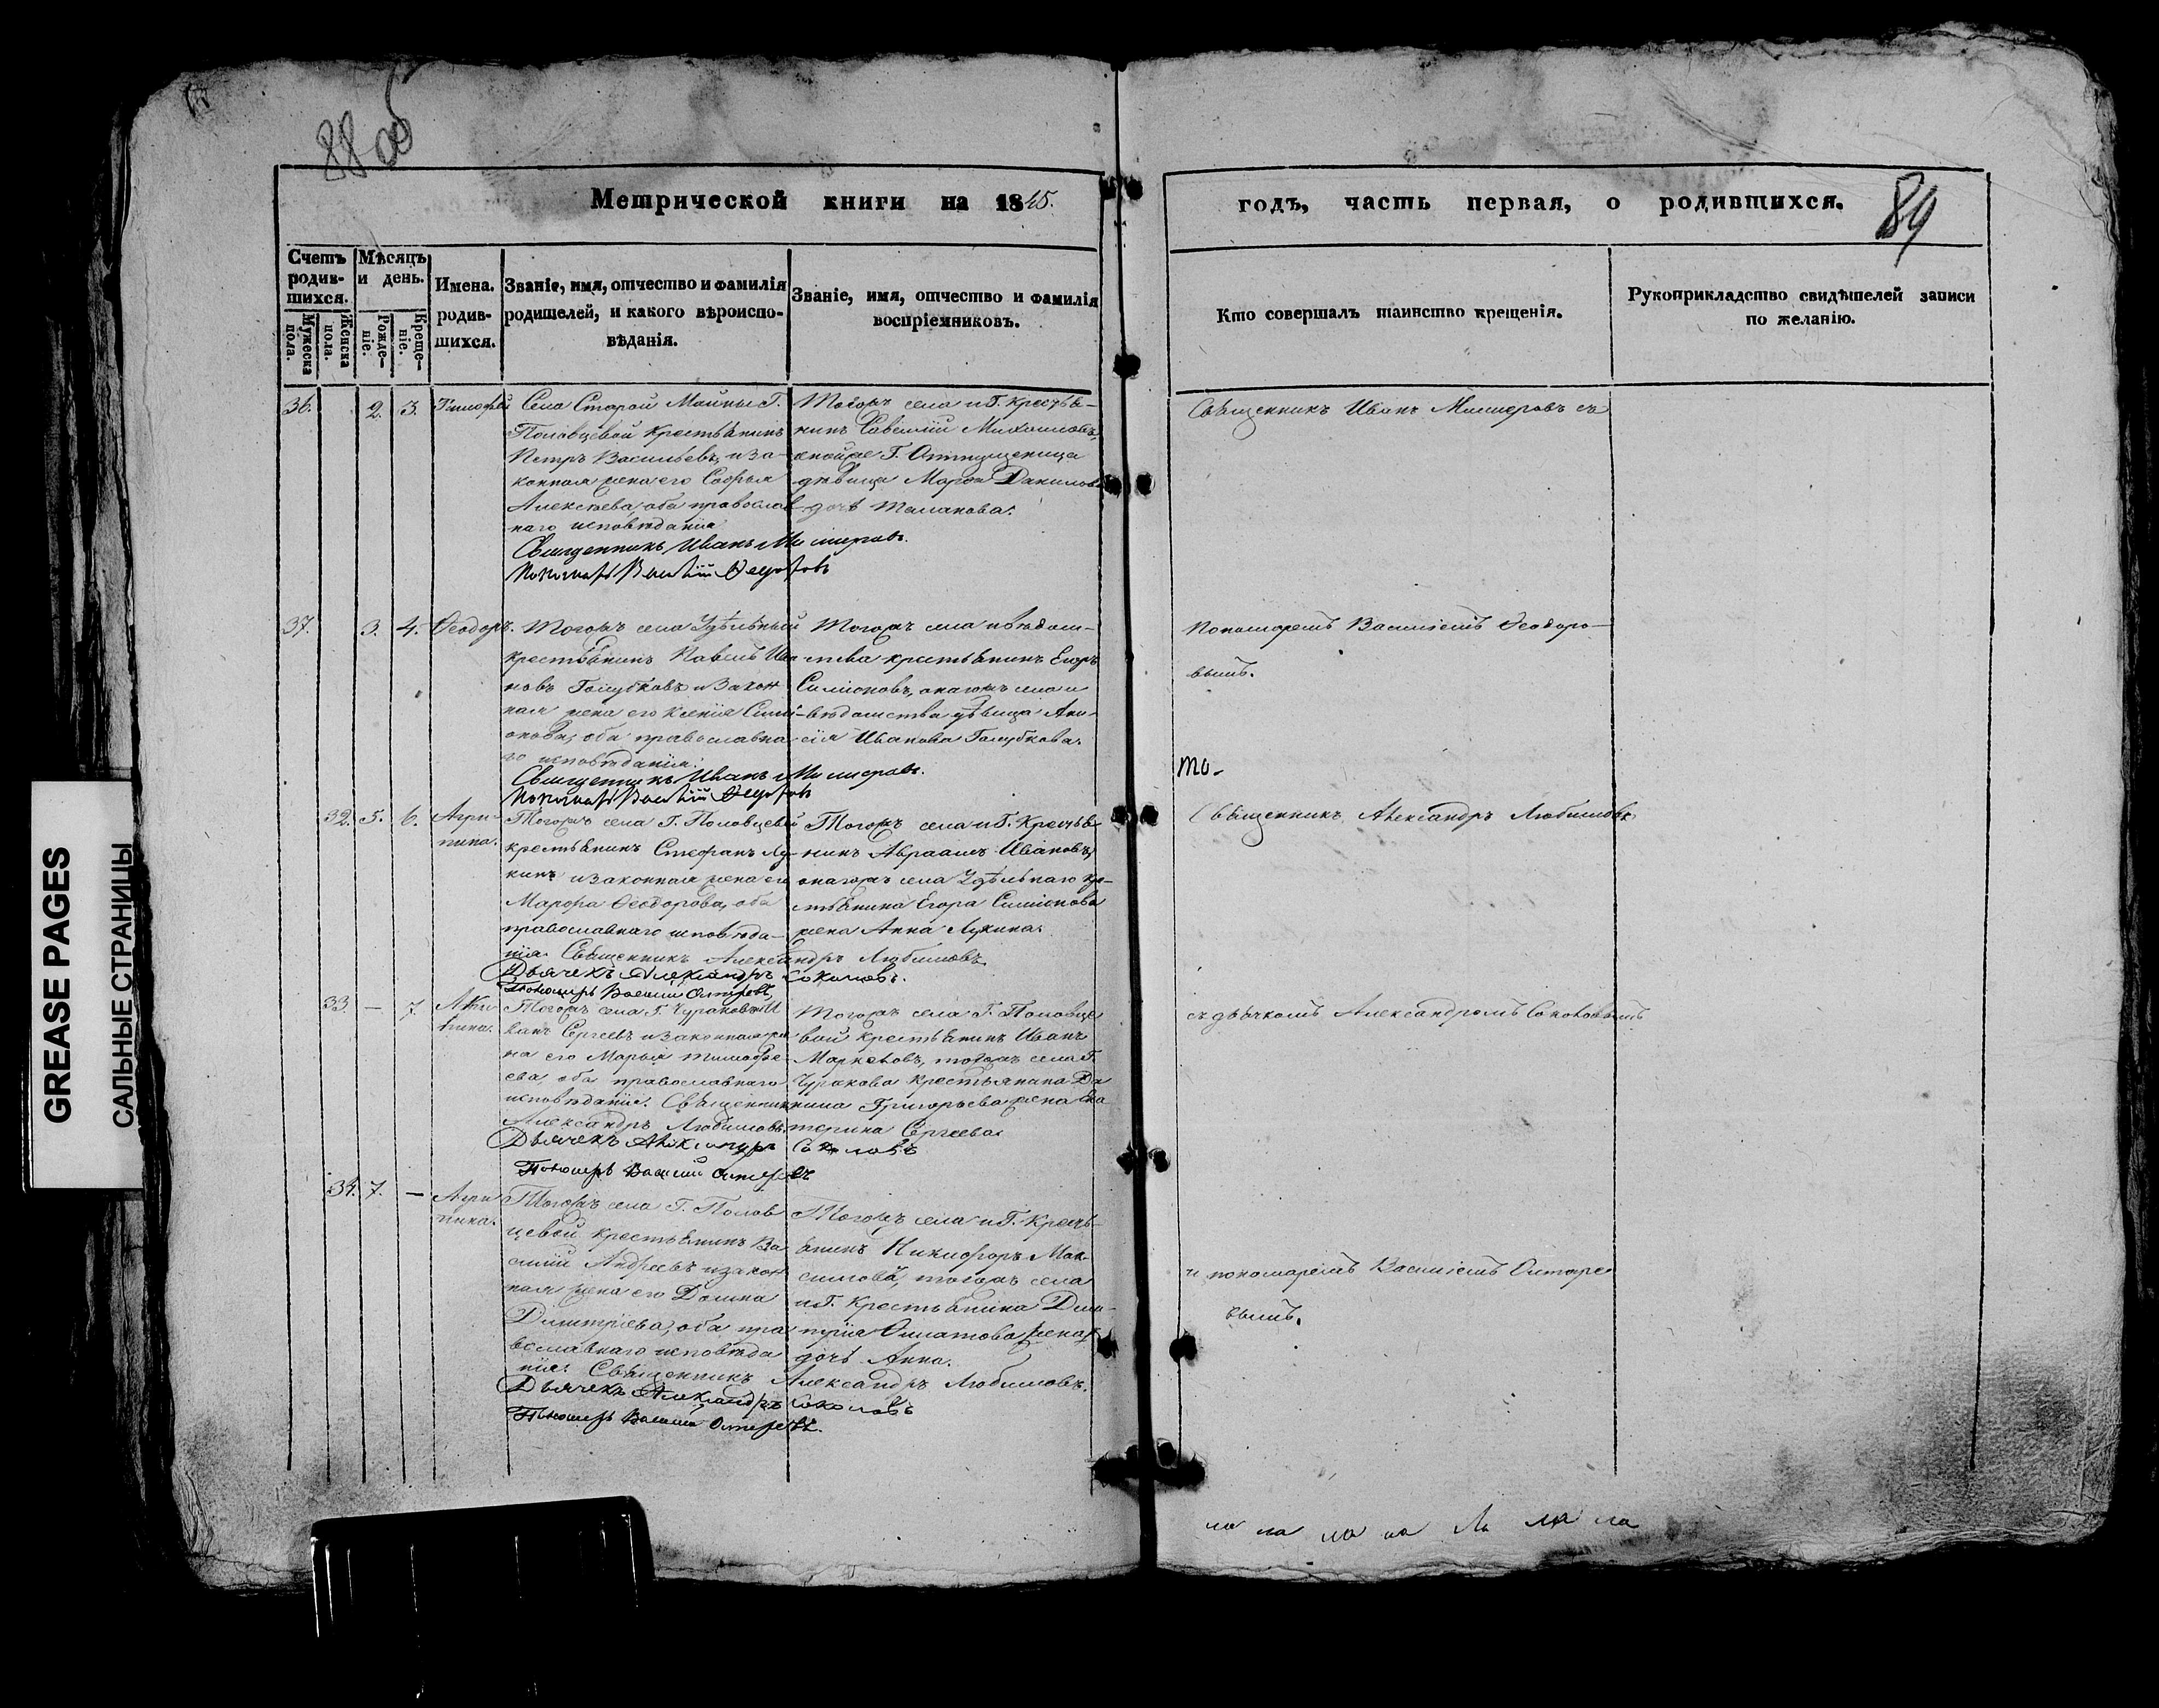 88 об
Метрической книги на 1845.
годъ, часть первая, о родившихся.
89
Счетъ родив-шихся.
Мужеска пола.
Женска пола.
Мѣсяцъ и день.
Рожде-ніе.
Креще-ніе.
Имена. родив-шихся.
Званіе, имя, отчество и фамилія
родителей, и какого вѣроиспо-
вѣданія.
Званіе, имя, отчество и фамилія
воспріемниковъ.
Кто совершалъ таинство крещенія.
Рукоприкладство свидѣтелей записи
по желанію.
36. 2. 3. Тимофей
Села Старой Майны Г.
Половцевой крестьянинъ
Петръ Васильевъ, и за-
конная жена его Софья
Алексѣева, оба православ-
наго исповѣданія
Священникъ Иванъ
Тогожъ села и Г. Крестья-
нинъ Савелій Михайловъ,
дѣвица Марфа Данилова
дочь
Священникъ Иванъ съ
37. 3. 4. Ѳеодоръ.
Тогожъ села Удѣльный
крестьянинъ Павелъ Ива-
новъ Голубковъ и Закон-
ная жена его Ксенія Симі-
онова, оба православна-
го исповѣданія.
Священникъ Иванъ
Тогожъ села и вѣдом-
ства крестьянинъ Егоръ
Симіоновъ, онагожъ села и
вѣдомства дѣвица Ани-
сія Иванова Голубкова.
Пономаремъ Василіемъ Ѳеодоро-
вымъ.
то-
32. 5. 6. Агри-
пина.
Тогожъ села Г. Половцевой
крестьянинъ Стефанъ Лу-
кинъ и законная жена его
Марфа Ѳеодорова, оба
православнаго исповѣда-
нія. Священникъ Александръ Любимовъ
Дьячекъ Александръ Соколовъ.
Тогожъ села и Г. Крестья-
нинъ Авраамъ Ивановъ,
онагожъ села Удѣльнаго кре-
стьянина Егора Симіонова
жена Анна Лукина.
Священникъ Александръ Любимовъ
33. — 7.
Тогожъ села Г. Чуракова И-
ванъ Сергеевъ и законная же-
на его Марья Тимофѣе-
ева, оба православнаго
исповѣданія. Священникъ
Александръ Любимовъ
Дьячекъ Александръ Соколовъ
Тогожъ села Г. Половце-
вой крестьянинъ Иванъ
Марковъ, тогожъ села Г.
Чуракова крестьянина Да-
нила Григорьева жена Ека-
терина Сергеева
съ дьячкомъ Александромъ Соколовымъ
34. 7. — Агри-
пина.
Тогожъ села Г. Полов-
цевой крестьянинъ Ва-
силій Андреевъ и закон-
ная жена его Домна
Димитріева, оба пра-
вославнаго исповѣда-
нія. Священникъ Александръ Любимовъ.
Дьячекъ Александръ Соколовъ
Тогожъ села и Г. Кресть-
янинъ Никифоръ Мак-
симовъ, тогожъ села
и Г. Крестьянина Дми-
трія
дочь Анна.
и пономаремъ Василіемъ
вымъ.
GREASE PAGES
САЛЬНЫЕ СТРАНИЦЫ